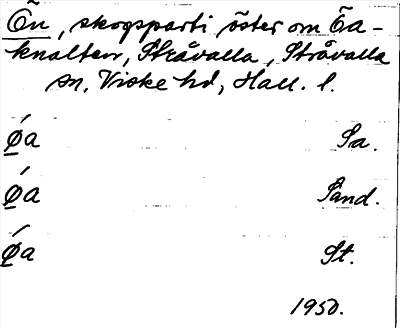 Ön, skogsparti öster om Öa-
knalten, Stråvalla, Stråvalla
sn, Viske hd, Hall. l.
Ǿa Sa.
Ǿa Sand.
Ǿa St.
1950.